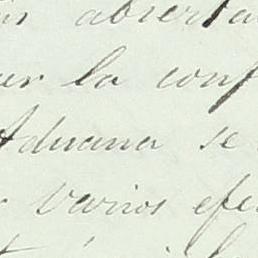 abierta
la conf
Aduana se
varios efe